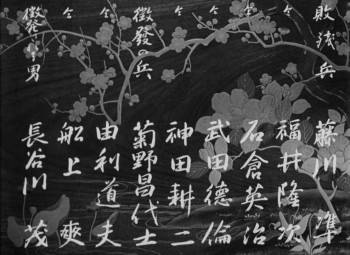 敗残兵 藤川準
仝 福井隆次
仝 石倉英治
仝 武田徳倫
仝 神田耕二
徴發の兵 菊野昌代士
仝 由利道夫
仝 船上爽
徴発の男 長谷川茂